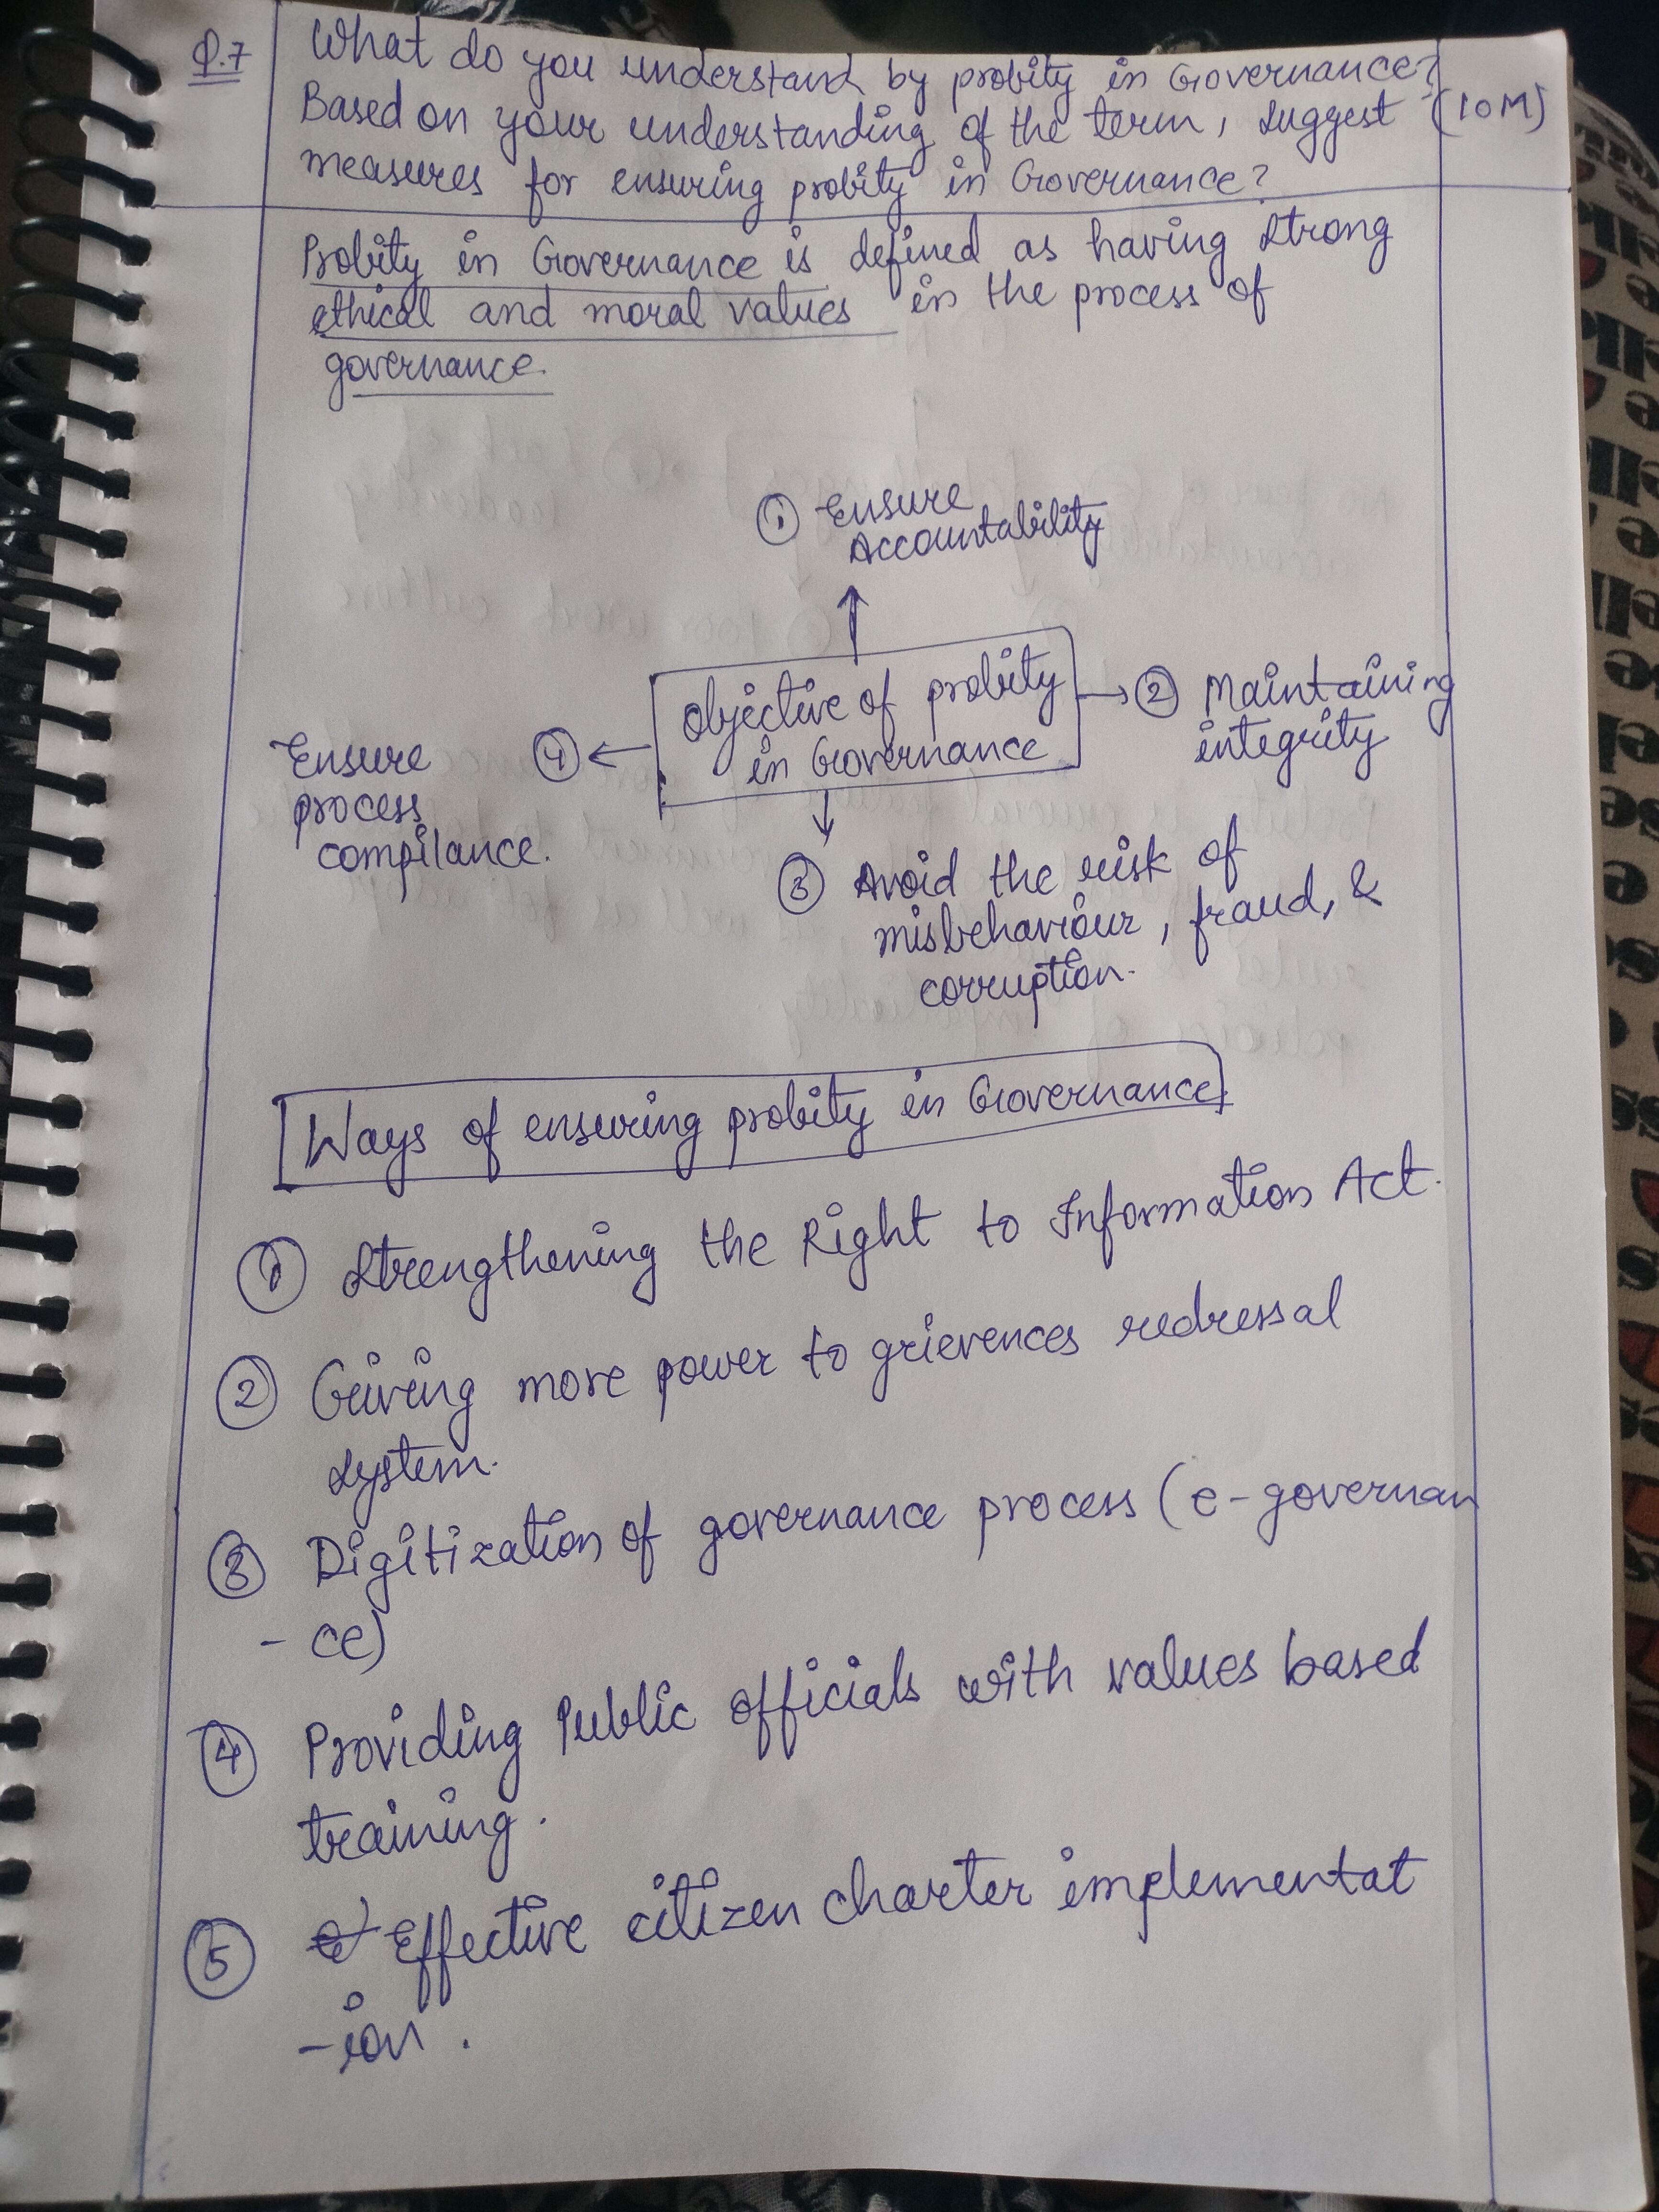 Q.7 What do you understand by probity in Governance?
Based on your understanding of the term, suggest (10M)
measures for ensuring probity in Governance?
Probity in Governance is defined as having strong
ethical and moral values in the process of
governance.
① Ensure
Accountability
Objective of probity
in Governance
② Maintaining
integrity
④ Ensure
process
compilance.
③ Avoid the risk of
misbehaviour, fraud, &
corruption.
Ways of ensuring probity in Governance
① Strengthening the Right to Information Act.
② Giving more power to grievences redressal
system.
③ Digitization of governance process (e-governan
- ce)
④ Providing Public officials with values based
training.
⑤ Effective citizen charter implementat
-ion.